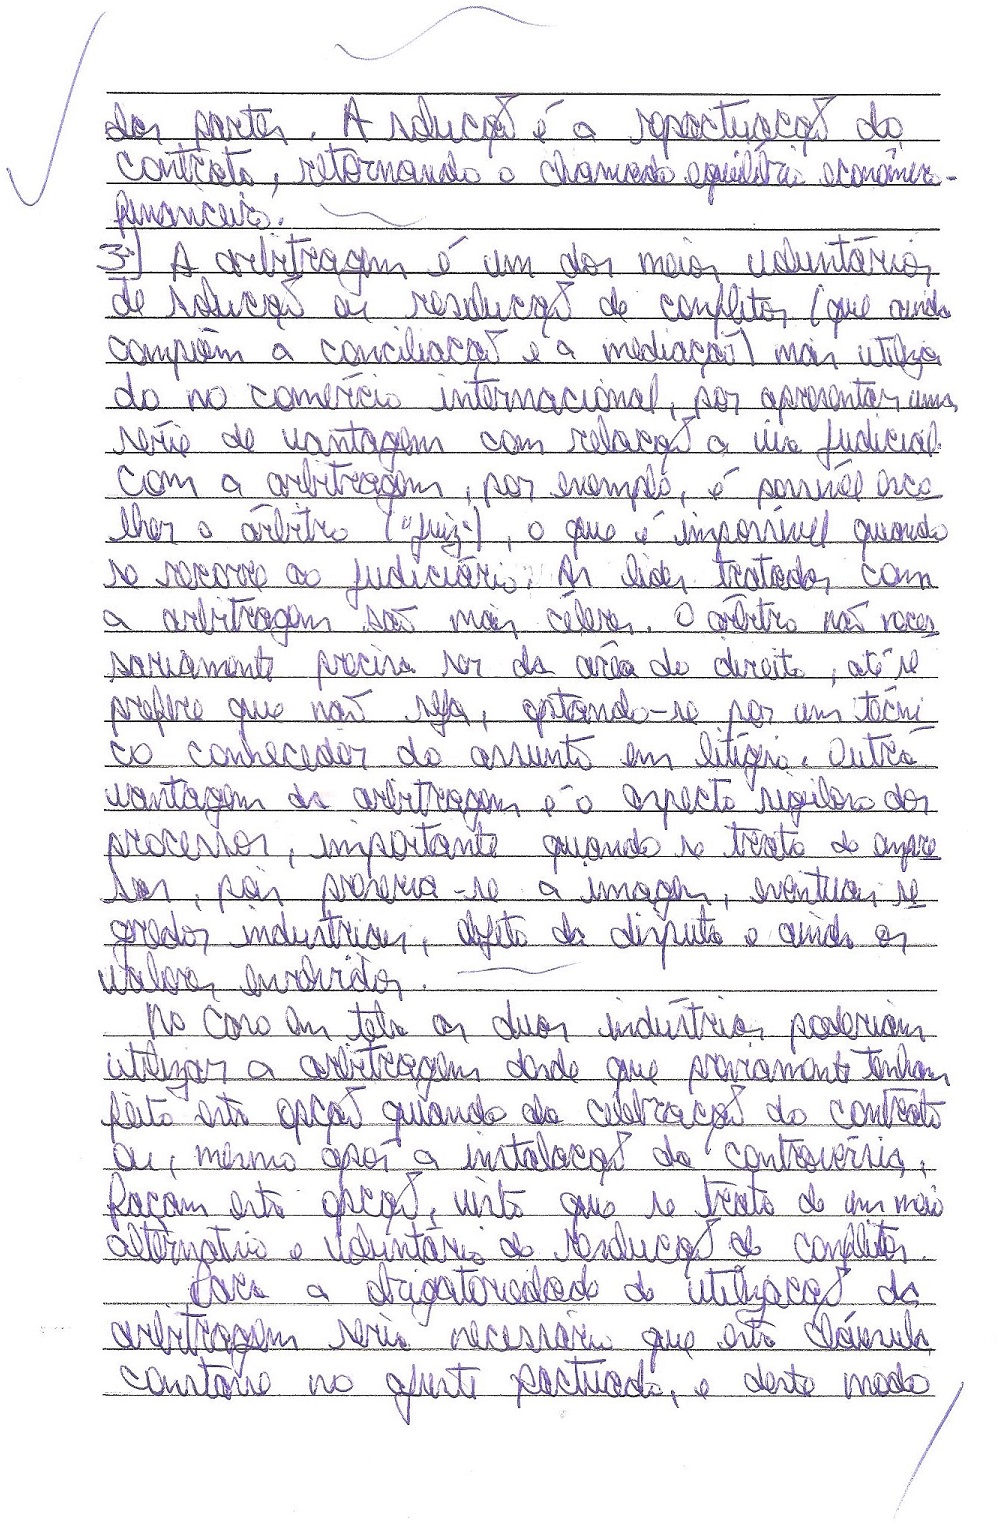 das partes. A solução é a repactuação do
contrato, retornando o chamado equilíbrio econômico-
financeiro.
3) A arbitragem é um dos meios voluntários
de solução ou resolução de conflitos (que ainda
compõem a conciliação e a mediação) mais utiliza
do no comércio internacional, por apresentar uma
série de vantagem com relação a via judicial.
Com a arbitragem, por exemplo, é possível esco
lher o árbitro ("juiz"), o que é impossível quando
se recorre ao judiciário. As lides tratadas com
a arbitragem são mais céleres. O árbitro não neces
sariamente precisa ser da área do direito, até se
prefere que não seja, optando-se por um técni
co conhecedor do assunto em litígio. Outra
vantagem da arbitragem é o aspecto sigiloso dos
processos, importante quando se trata de empre
sas, pois preserva-se a imagem, eventuais se
gredos industriais, objeto da disputa e ainda os
valores envolvidos.
No caso em tela as duas indústrias poderiam
utilizar a arbitragem desde que previamente tenham
feito esta opção quando da celebração do contrato
ou, mesmo após a instalação da controvérsia,
façam esta opção, visto que se trata de um meio
alternativo e voluntário de resolução de conflitos.
Para a obrigatoriedade de utilização da
arbitragem seria necessário que esta cláusula
constasse no ajuste pactuado, e deste modo